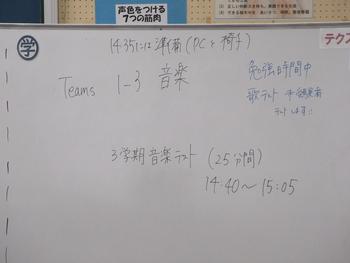 声色をつける
7つの筋肉
学
テクス
14:35に準備(PCと椅子)
Teams 1-3 音楽
勉強時間中
歌テスト
テストします
3学期音楽テスト (25分間)
14:40～15:05